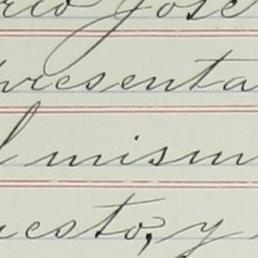 rio José
presenta
l mism
uesto, y